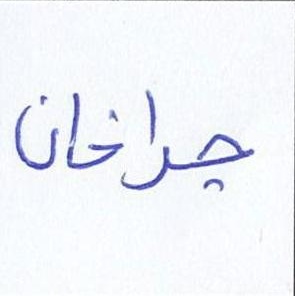 جراخان